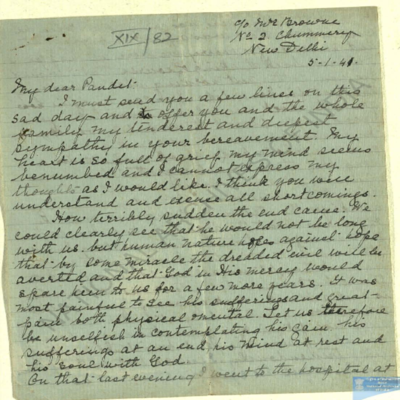 c/o Mrs Browne
No 2. Chummery
New Delhi
XIX/82
5-1-41
My dear Pandit:
I must send you a few lines on this
sad day and to offer you and the whole
family my tenderest and deepest
sympathy in your bereavement. My
heart is so full of grief my mind seems
benumbed and I cannot express my
thoughts as I would like. I think you will
understand and excuse all shortcomings.
How terribly sudden the end came. We
could clearly see that he would not be long
with us. but human nature hopes against hope
that by some miracle the dreaded will be
averted and that God in His mercy would
spare him to us for a few more years. It was
most painful to see his sufferings and great
pain both physical mental. Let us therefore
be unselfish in contemplating his gain his
sufferings at an end his mind at rest and
his soul with God
On that last evening I went to the hospital at